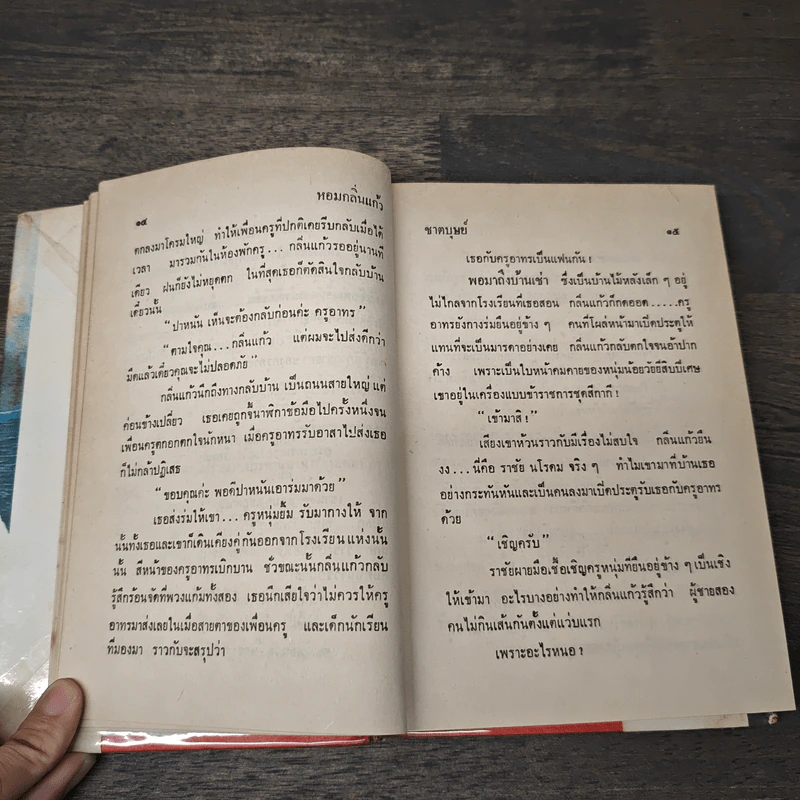 ๑๔
หอมกลิ่นแก้ว
ตกลงมาโครมใหญ่ ทำให้เพื่อนครูที่ปกติเคยรีบกลับเมื่อได้
เวลา มารวมกันในห้องพักครู... กลิ่นแก้วรออยู่นานที
เดียว ฝนก็ยังไม่หยุดตก ในที่สุดเธอก็ตัดสินใจกลับบ้าน
เดี๋ยวนั้น
“ปาหนัน เห็นจะต้องกลับก่อนค่ะ ครูอาทร”
“ตามใจคุณ...กลิ่นแก้ว แต่ผมจะไปส่งดีกว่า
มืดแล้วเดี๋ยวคุณจะไม่ปลอดภัย”
กลิ่นแก้วนึกถึงทางกลับบ้าน เป็นถนนสายใหญ่ แต่
ค่อนข้างเปลี่ยว เธอเคยถูกจี้นาฬิกาข้อมือไปครั้งหนึ่งจน
เพื่อนครูตกอกตกใจนักหนา เมื่อครูอาทรรับอาสาไปส่งเธอ
ก็ไม่กล้าปฏิเสธ
“ขอบคุณค่ะ พอดีปาหนันเอาร่มมาด้วย”
เธอส่งร่มให้เขา... ครูหนุ่มยิ้ม รับมากางให้ จาก
นั้นทั้งเธอและเขาก็เดินเคียงคู่กันออกจากโรงเรียนแห่งนั้น
นั้น สีหน้าของครูอาทรเบิกบาน ชั่วขณะนั้นกลิ่นแก้วกลับ
รู้สึกร้อนจัดที่พวงแก้มทั้งสอง เธอนึกเสียใจว่าไม่ควรให้ครู
อาทรมาส่งเลยในเมื่อสายตาของเพื่อนครู และเด็กนักเรียน
ที่มองมา ราวกับจะสรุปว่า
ชาตบุษย์
๑๕
เธอกับครูอาทรเป็นแฟนกัน !
พอมาถึงบ้านเช่า ซึ่งเป็นบ้านไม้หลังเล็ก ๆ อยู่
ไม่ไกลจากโรงเรียนที่เธอสอน กลิ่นแก้วก็กดออด.....ครู
อาทรยังกางร่มยืนอยู่ข้าง ๆ คนที่โผล่หน้ามาเปิดประตูให้
แทนที่จะเป็นมารดาอย่างเคย กลิ่นแก้วกลับตกใจจนอ้าปาก
ค้าง เพราะเป็นใบหน้าคมคายของหนุ่มน้อยวัยยี่สิบปีเศษ
เขาอยู่ในเครื่องแบบข้าราชการชุดสีกากี !
“เข้ามาสิ !”
เสียงเขาห้วนราวกับมีเรื่องไม่สบใจ กลิ่นแก้วยืน
งง...นี่คือ ราชัย นโรดม จริง ๆ ทำไมเขามาที่บ้านเธอ
อย่างกระทันหันและเป็นคนลงมาเปิดประตูรับเธอกับครูอาทร
ด้วย
“เชิญครับ”
ราชัยผายมือเชื้อเชิญครูหนุ่มที่ยืนอยู่ข้าง ๆ เป็นเชิง
ให้เข้ามา อะไรบางอย่างทำให้กลิ่นแก้วรู้สึกว่า ผู้ชายสอง
คนไม่กินเส้นกันตั้งแต่แว่บแรก
เพราะอะไรหนอ ?